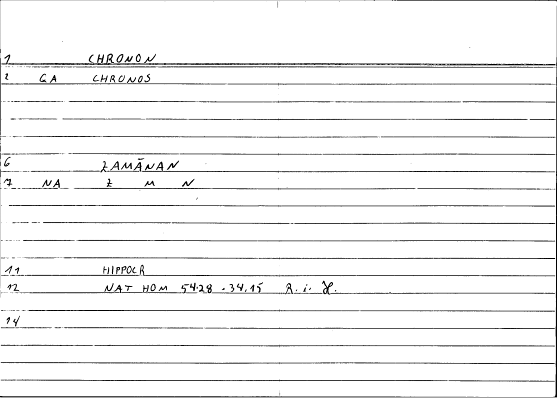 1 CHRONON
2 GA CHRONOS
6 ZAMĀNAN
7 NA Z M N
11 HIPPOCR
12 NAT HOM 54.28 - 34.15 R. i. H.
14